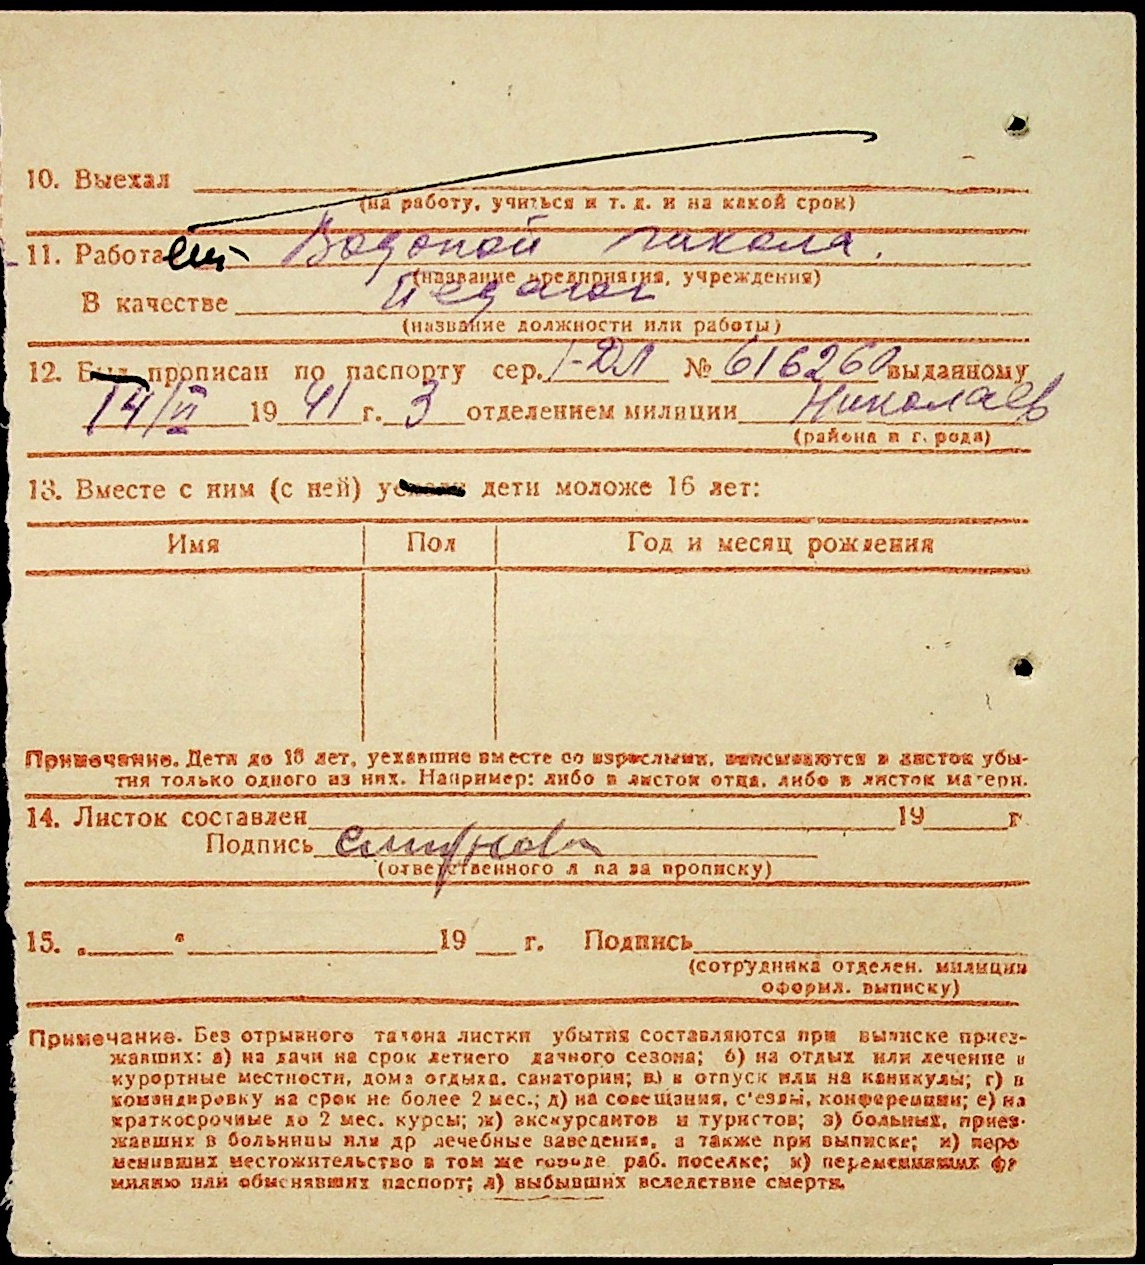 10. Выехал
(на работу, учиться и т. д. и на какой срок)
11. Работает Водопой школа.
(название предприятия, учреждения)
В качестве Педагог
(название должности или работы)
12. Был прописан по паспорту сер. I-ДЛ № 616260 выданному
14/II 1941 г. 3 отделением милиции Николаев
(района и города)
13. Вместе с ним (с ней) уехали дети моложе 16 лет:
Имя Пол Год и месяц рождения
Примечание. Дети до 16 лет, уехавшие вместе со взрослыми, вписываются в листок убы-
тия только одного из них. Например: либо в листок отца, либо в листок матери.
14. Листок составлен 19 г
Подпись Смирнова
(ответственного лица за прописку)
15. „ “ 19 г. Подпись
(сотрудника отделен. милиции
оформл. выписку)
Примечание. Без отрывного талона листки убытия составляются при выписке приез-
жавших: а) на дачи на срок летнего дачного сезона; б) на отдых или лечение в
курортные местности, дома отдыха, санатории; в) в отпуск или на каникулы; г) в
командировку на срок не более 2 мес.; д) на совещания, с'езды, конференции; е) на
краткосрочные до 2 мес. курсы; ж) экскурсантов и туристов; з) больных, приез-
жавших в больницы или др лечебные заведения, а также при выписке; и) пере
менивших местожительство в том же городе раб. поселке; к) переменивших фа
милию или обменявших паспорт; л) выбывших вследствие смерти.